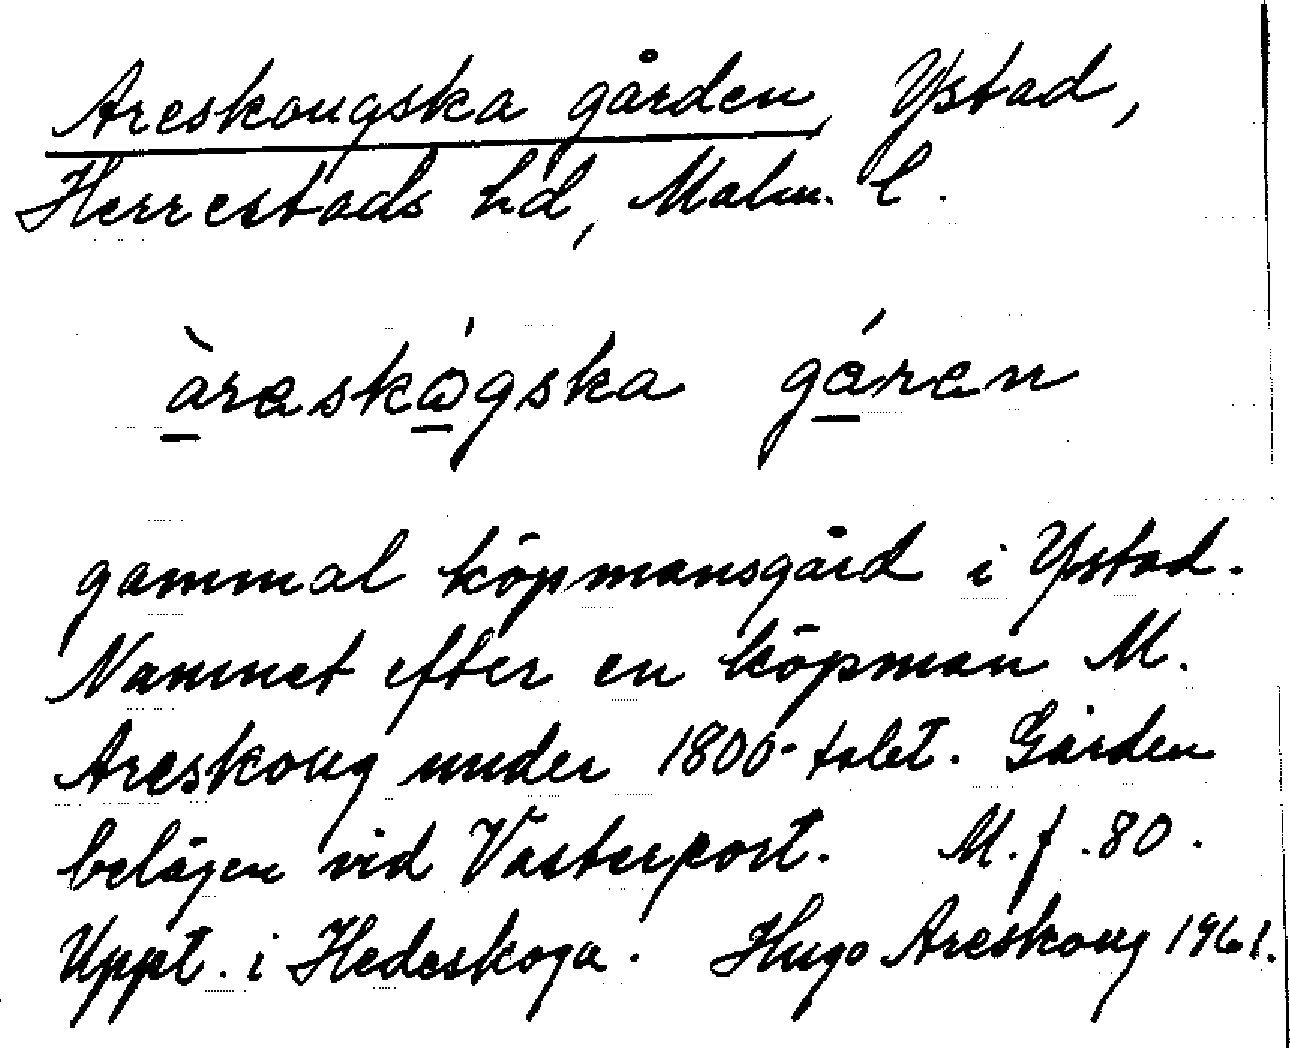 Areskougska gården, Ystad,
Herrestads hd, Malm. l.
àreskågska gáren
gammal köpmansgård i Ystad.
Namnet efter en köpman M.
Areskoug under 1800-talet. Gården
belägen vid Västerport. M. f. 80.
Uppt. i Hedeskoga. Hugo Areskoug 1961.